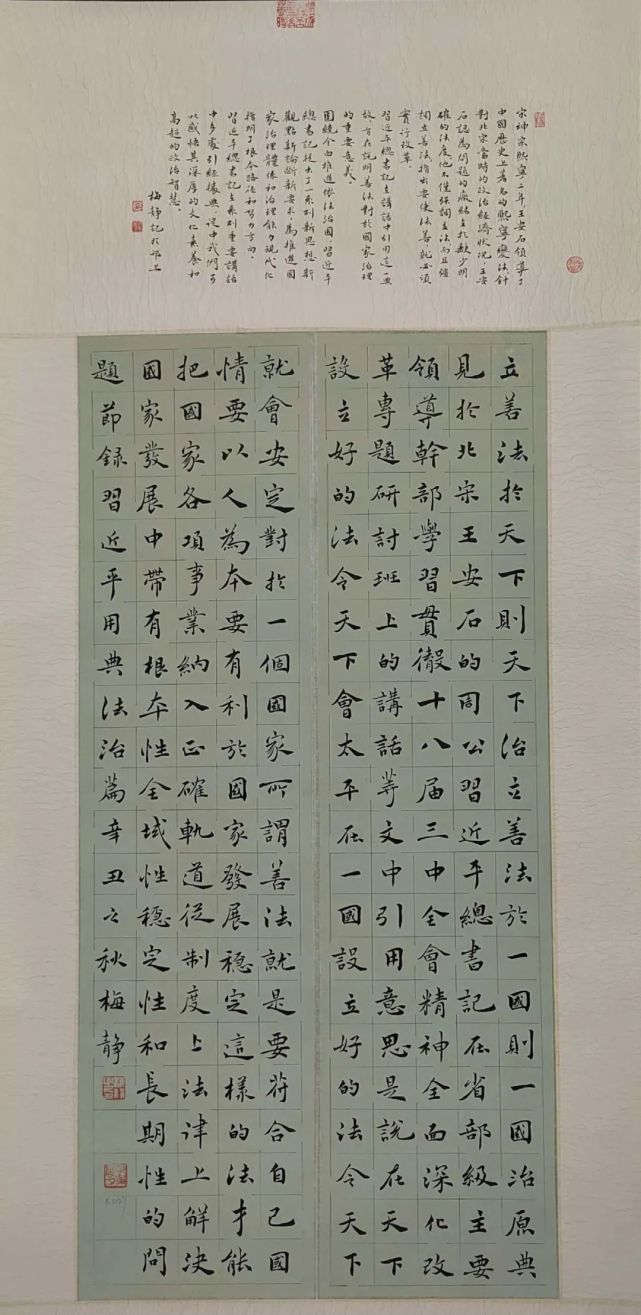 宋神宗熙寧二年王安石領導了
中國歷史上著名的熙寧變法針
對北宋當時的政治經濟狀況王安
石認為問題的癥結在於缺少明
確的法度他不僅強調立法而且強
調立善法指出要使法善就必須
實行改革。
習近平總書記在講話中引用這一典
故旨在說明善法對於國家治理
的重要意義。
圍繞全面推進依法治國習近平
總書記提出了一系列新思想新
觀點新論斷新要求為推進國
家治理體係和治理能力現代化
指明了根本路徑和努力方向。
習近平總書記在系列重要講話
中多處引經據典從中我們可
以感悟其深厚的文化素養和
高超的政治智慧。
梅靜記於邢上
立善法於天下則天下治立善法於一國則一國治原典
見於北宋王安石的周公習近平總書記在省部級主要
領導幹部學習貫徹十八届三中全會精神全面深化改
革專題研討班上的講話等文中引用意思是說在天下
設立好的法令天下會太平在一國設立好的法令天下
就會安定對於一個國家所謂善法就是要符合自己國
情要以人為本要有利於國家發展穩定這樣的法才能
把國家各項事業納入正確軌道從制度上法律上解決
國家發展中帶有根本性全域性穩定性和長期性的問
題節錄習近平用典法治篇辛丑之秋梅靜